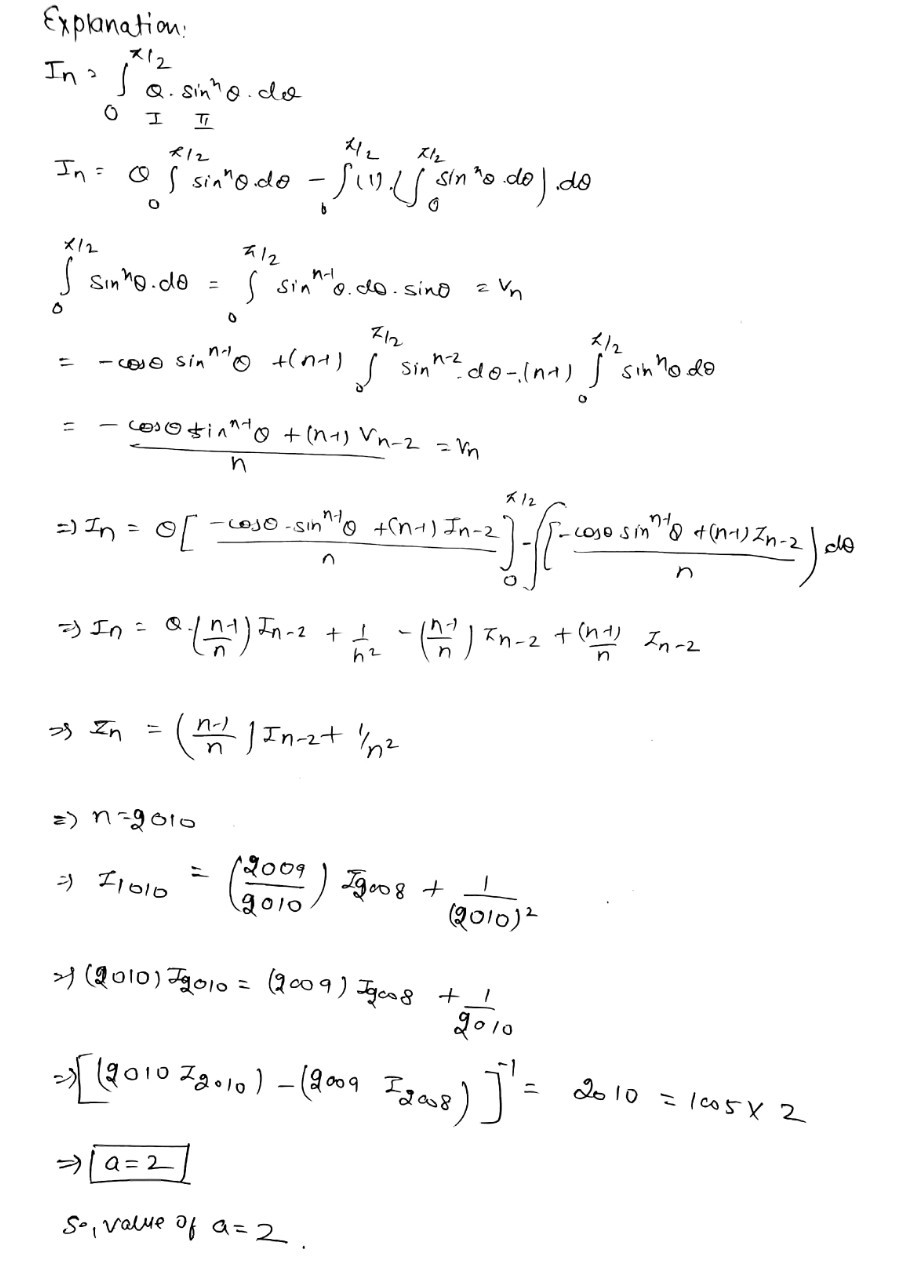 Explanation:
In = ∫₀^π/2 θ. sinⁿθ. dθ
I II
In = θ ∫₀^π/2 sinⁿθ.dθ - ∫₀^π/2 (1).(∫₀^π/2 sinⁿθ.dθ).dθ
∫₀^π/2 sinⁿθ.dθ = ∫₀^π/2 sinⁿ⁻¹θ.dθ.sinθ = Vn
= -cosθ sinⁿ⁻¹θ +(n-1) ∫₀^π/2 sinⁿ⁻².dθ-.(n-1) ∫₀^π/2 sinⁿθ dθ
= (-cosθ sinⁿ⁻¹θ + (n-1) Vn-2)/n = Vn
=> In = θ[(-cosθ-sinⁿ⁻¹θ +(n-1) In-2)/n]₀^π/2 - ∫((-cosθ sinⁿ⁻¹θ +(n-1) In-2)/n) dθ
=> In = θ.((n-1)/n) In-2 + 1/n² - ((n-1)/n) In-2 + (n-1)/n In-2
=> In = ((n-1)/n) In-2 + 1/n²
=> n=2010
=> I1010 = (2009/2010) I2008 + 1/(2010)²
=> (2010) I2010 = (2009) I2008 + 1/2010
=> [(2010 I2010) - (2009 I2008)]⁻¹ = 2010 = 1005 x 2
=> a=2
So, value of a=2.